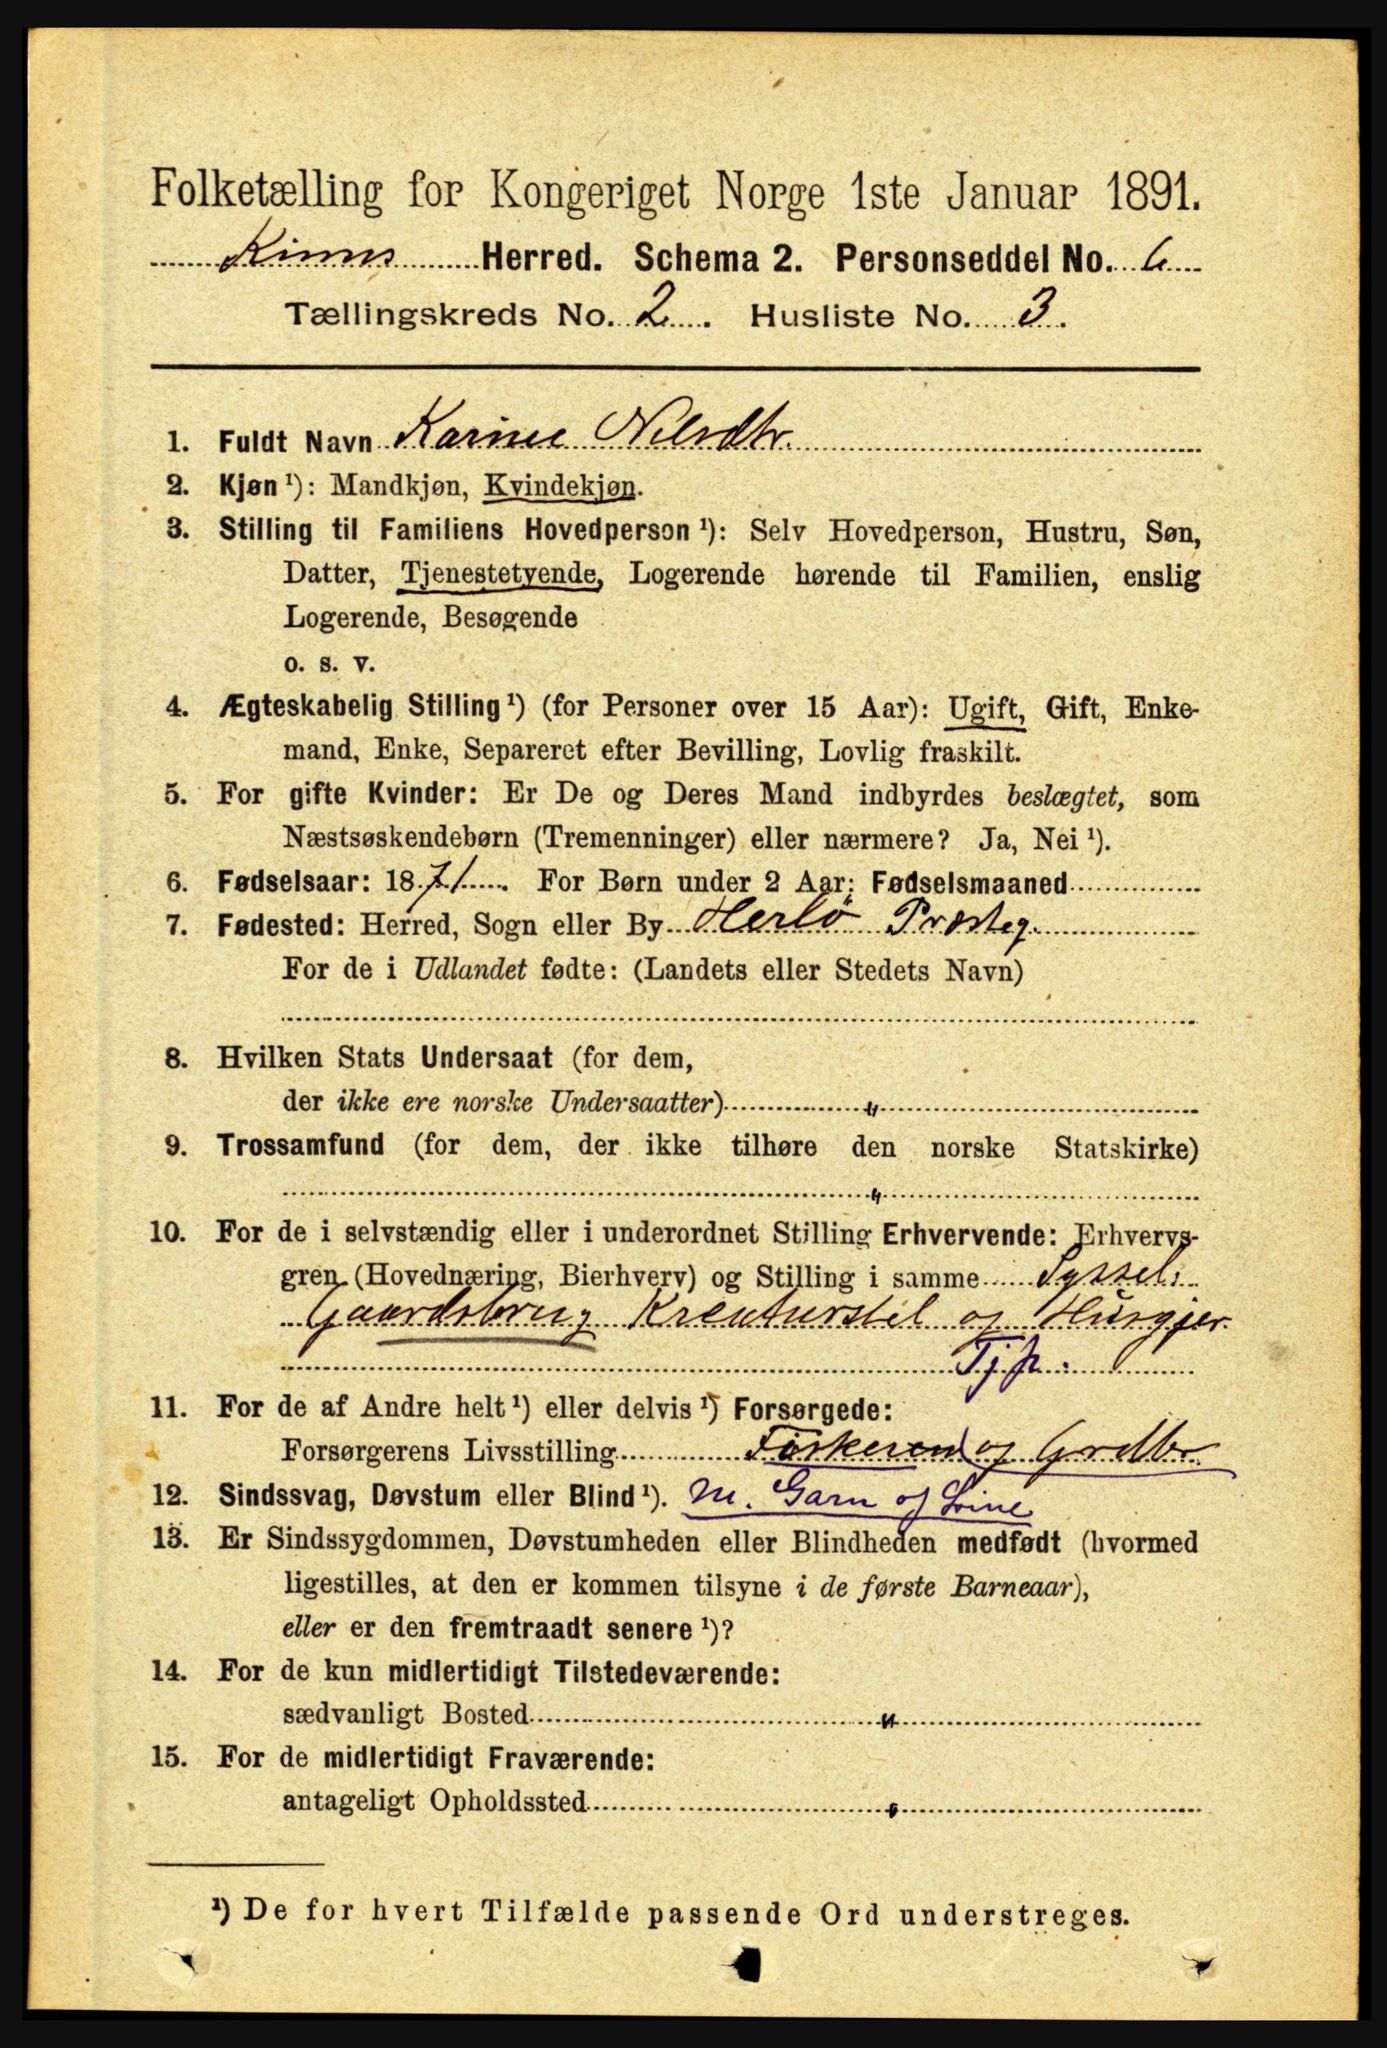 Folketælling for Kongeriget Norge 1ste Januar 1891.
Kinns Herred. Schema 2. Personseddel No. 6
Tællingskreds No. 2. Husliste No. 3.
1. Fuldt Navn Karine Nilsdtr.
2. Kjøn ¹): Mandkjøn, Kvindekjøn.
3. Stilling til Familiens Hovedperson ¹): Selv Hovedperson, Hustru, Søn,
Datter, Tjenestetyende, Logerende hørende til Familien, enslig
Logerende, Besøgende
o. s. v.
4. Ægteskabelig Stilling ¹) (for Personer over 15 Aar): Ugift, Gift, Enke-
mand, Enke, Separeret efter Bevilling, Lovlig fraskilt.
5. For gifte Kvinder: Er De og Deres Mand indbyrdes beslægtet, som
Næstsøskendebørn (Tremenninger) eller nærmere? Ja, Nei ¹).
6. Fødselsaar: 1871. For Børn under 2 Aar: Fødselsmaaned
7. Fødested: Herred, Sogn eller By Herlö Præsteg.
For de i Udlandet fødte: (Landets eller Stedets Navn)
8. Hvilken Stats Undersaat (for dem,
der ikke ere norske Undersaatter) "
9. Trossamfund (for dem, der ikke tilhøre den norske Statskirke)
"
10. For de i selvstændig eller i underordnet Stilling Erhvervende: Erhvervs-
gren (Hovednæring, Bierhverv) og Stilling i samme Syssel.
Gaardsbrug Kreaturstel og Husgjer.
Tjp.
11. For de af Andre helt ¹) eller delvis ¹) Forsørgede:
Forsørgerens Livsstilling Fiskeren og Grdbr
12. Sindssvag, Døvstum eller Blind ¹). m. Garn og Line
13. Er Sindssygdommen, Døvstumheden eller Blindheden medfødt (hvormed
ligestilles, at den er kommen tilsyne i de første Barneaar),
eller er den fremtraadt senere ¹)?
14. For de kun midlertidigt Tilstedeværende:
sædvanligt Bosted "
15. For de midlertidigt Fraværende:
antageligt Opholdssted "
¹) De for hvert Tilfælde passende Ord understreges.